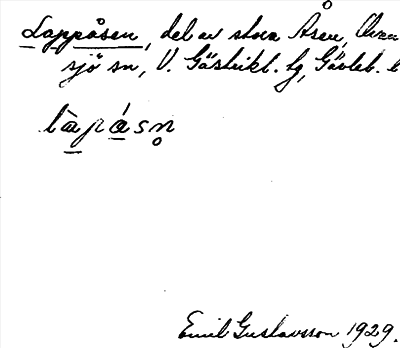 Lappåsen, del av stora Åsen,
sjö sn, V. Gästrikl. tg, Gävleb. l
làpåsn
Emil Gustavsson 1929.